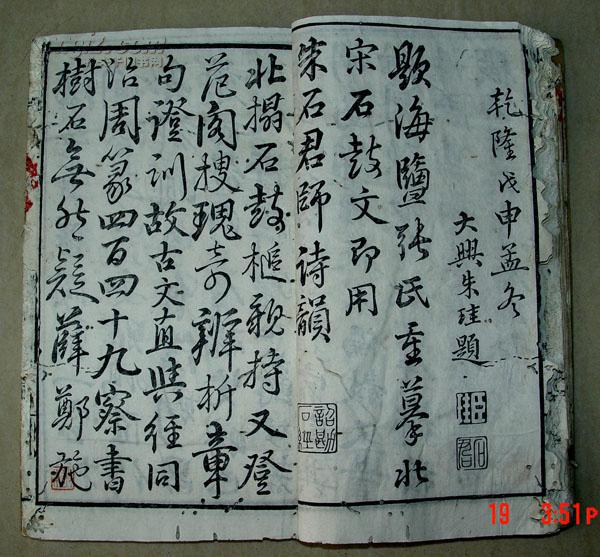 乾隆戊申孟冬
大興朱珪題
題海鹽張氏重摹北
宋石鼓文即用
朱石君師詩韻
北搨石鼓極親持又登
范閣搜瑰奇辨析章
句證訓故古文直與徑同
治周篆四百四十九察書
樹石無所疑薛鄭施
19 3:51P